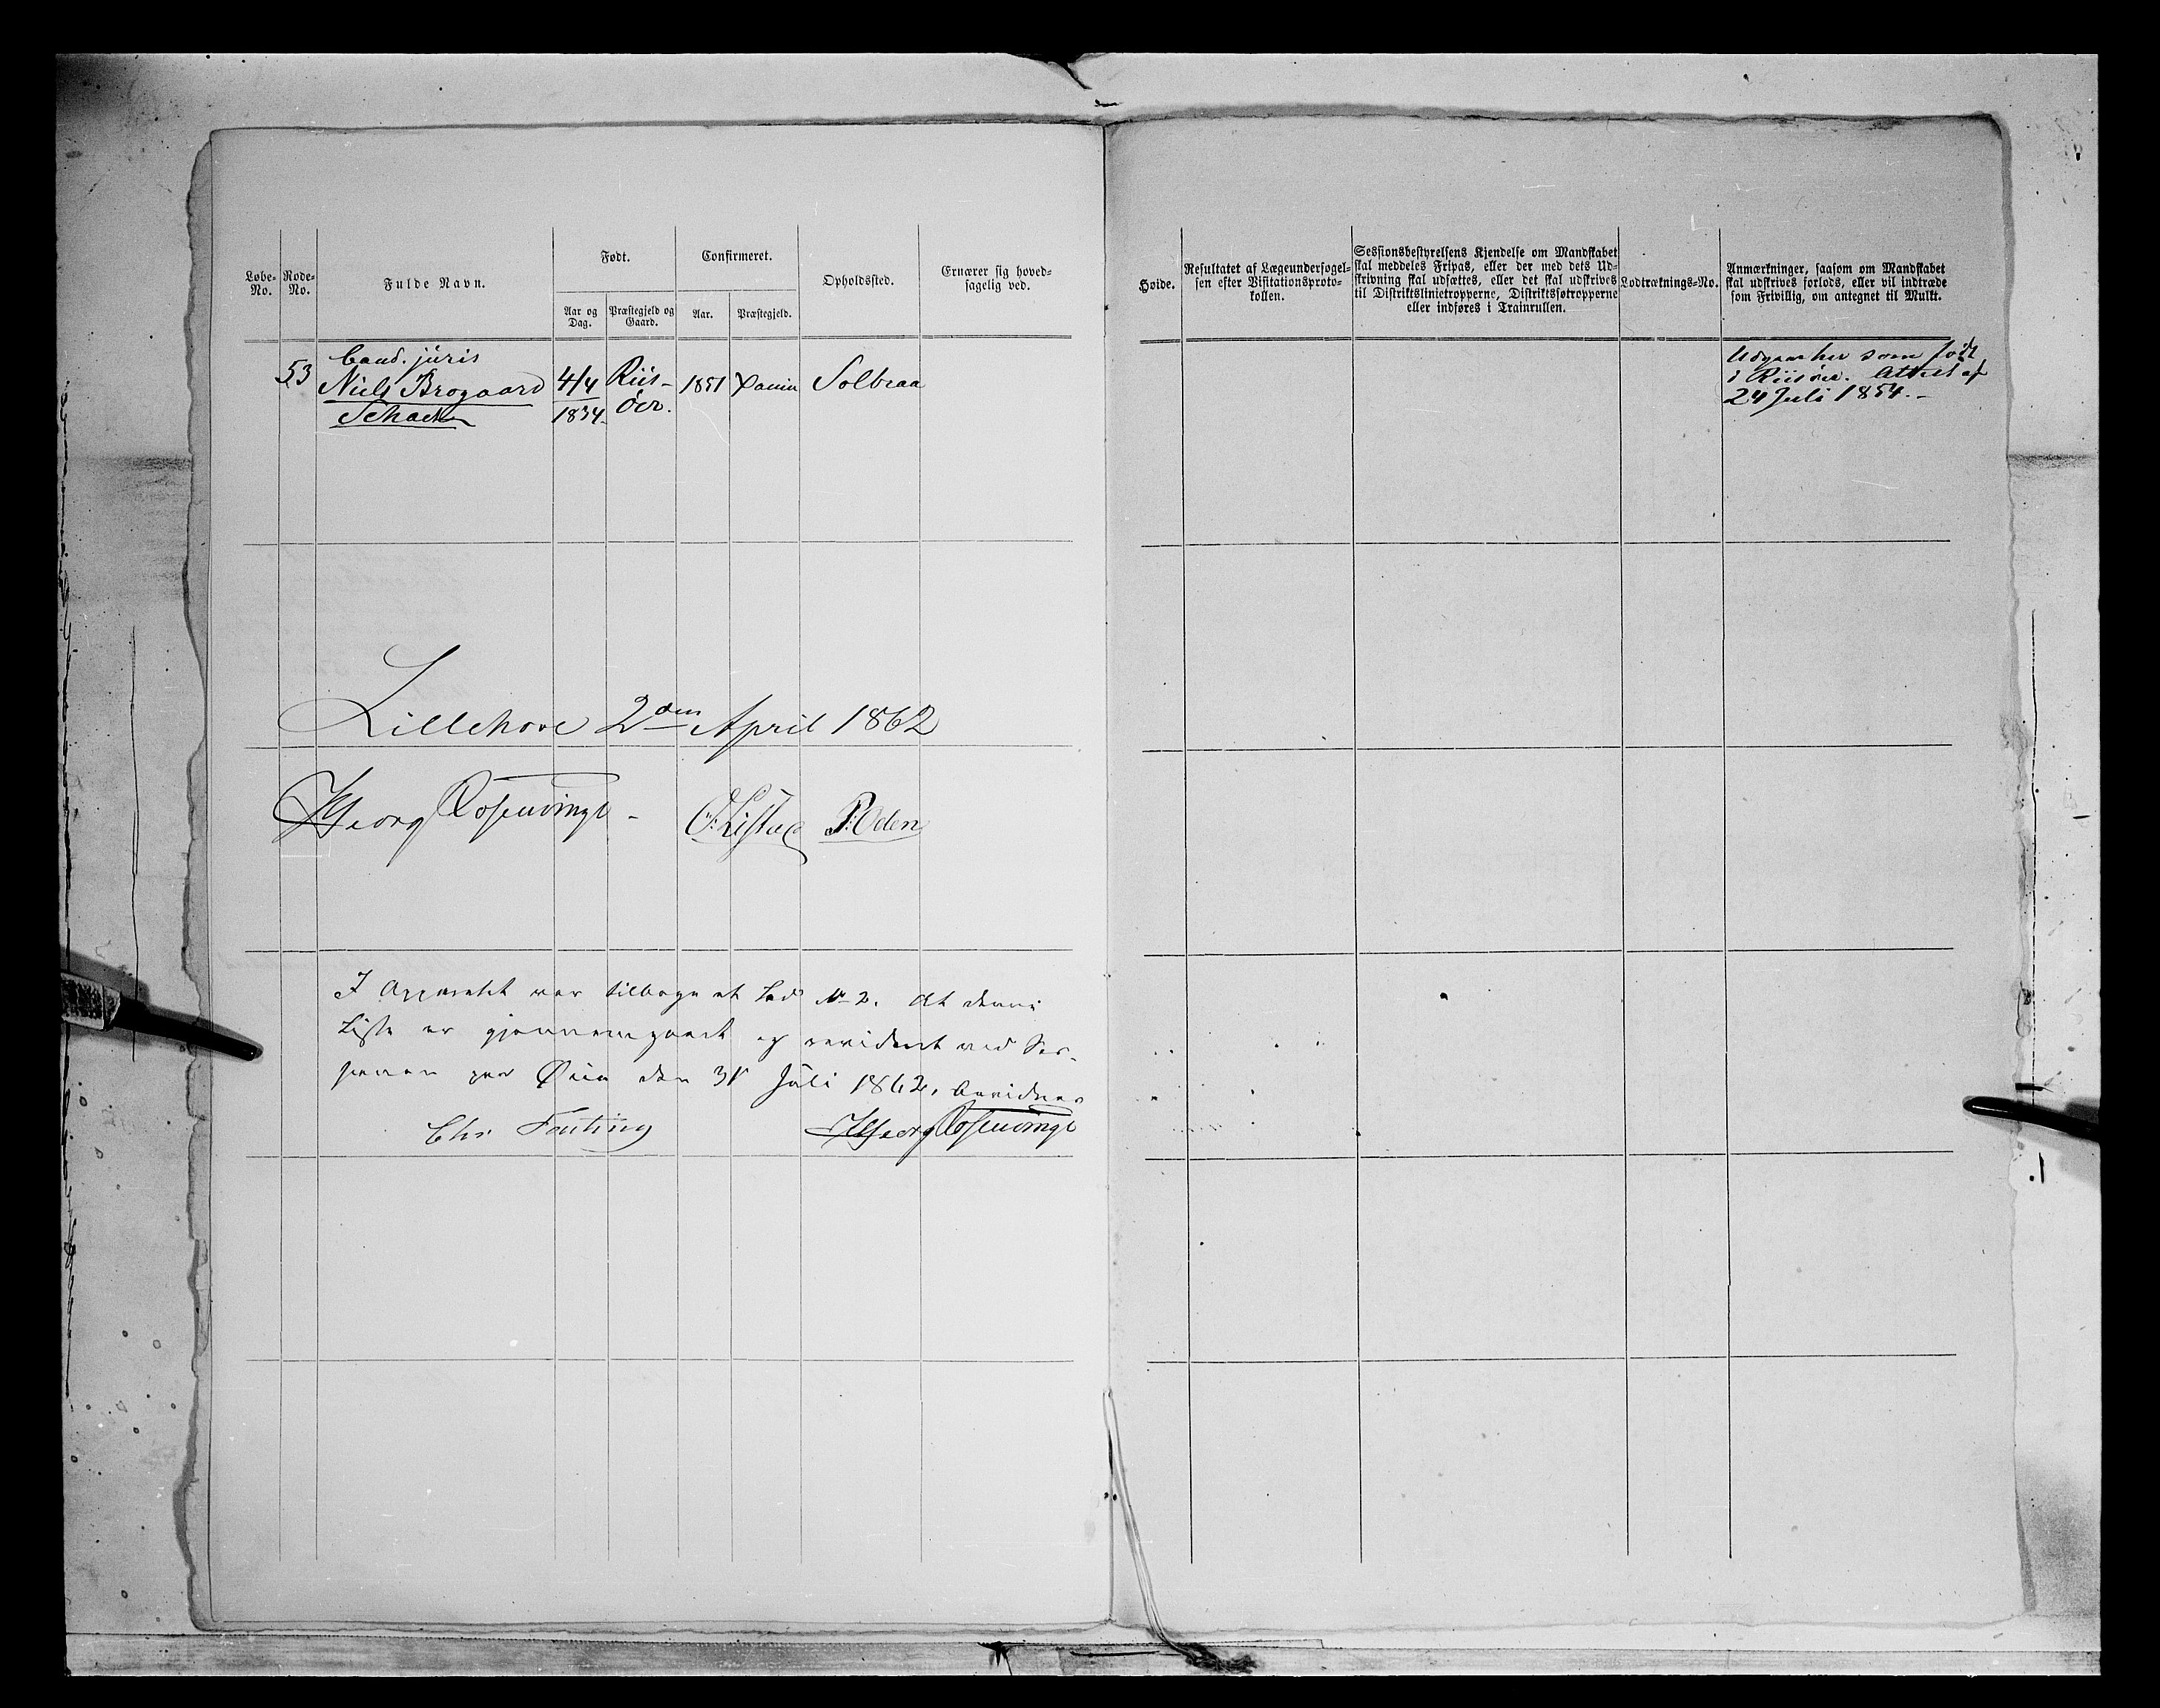 Løbe-
No.
Rode-
No.
Fulde Navn.
Født.
Aar og
Dag.
Præstegjeld og
Gaard.
Confirmeret.
Aar.
Præstegjeld.
Opholdssted.
Ernærer sig hoved-
sagelig ved.
Høide.
Resultatet af Lægeundersøgel-
sen efter Visitationsproto-
kollen.
Sessionsbestyrelsens Kjendelse om Mandskabet
skal meddeles Fripas, eller der med dets Ud-
skrivning skal udsættes, eller det skal udskrives
til Distriktslinietropperne, Distriktssøtropperne
eller indføres i Trainrullen.
Lodtræknings-No.
Anmærkninger, saasom om Mandskabet
skal udskrives forlods, eller vil indtræde
som Frivillig, om antegnet til Mulkt.
53
Cand. juris
Niels Brogaard
4/4
1834
Riis-
öer.
1851
Solbraa
Udgaar her som født
i Riisöer. Attest af
24 Juli 1854.-
Lillehove 2den April 1862
HGeorg Rosenvinge -
P: Oden
I Apparatet var tilbage et Lod No 2. At denne
Liste er gjennemgaaet og revideret ved Ses-
sionen paa Öien den 31 Juli 1862, bevidnes
Chr
HGeorg Rosenvinge